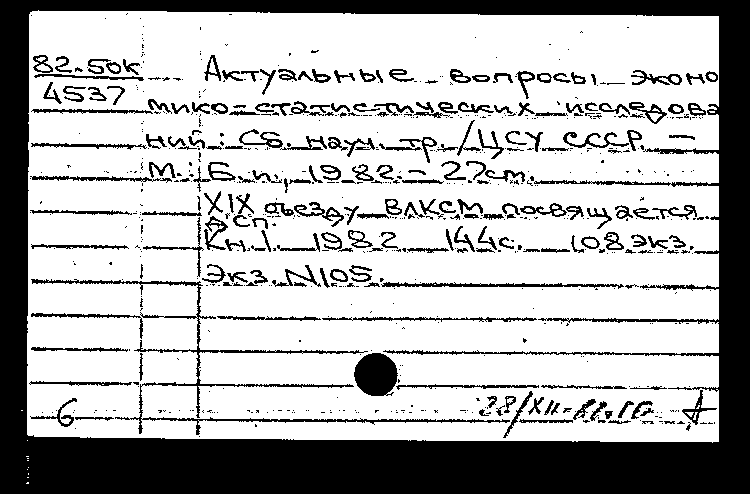 82.50к Актуальные вопросы эконо
4537 мико-статистических исследова
ний: Сб. науч. тр./ЦСУ СССР. —
М.: Б.и., 1982. - 27ст.
XIX съезду ВЛКСМ посвящается
сп.
Кн.1. 1982 144с. 108экз.
Экз. N105.
6 28/XII-82.